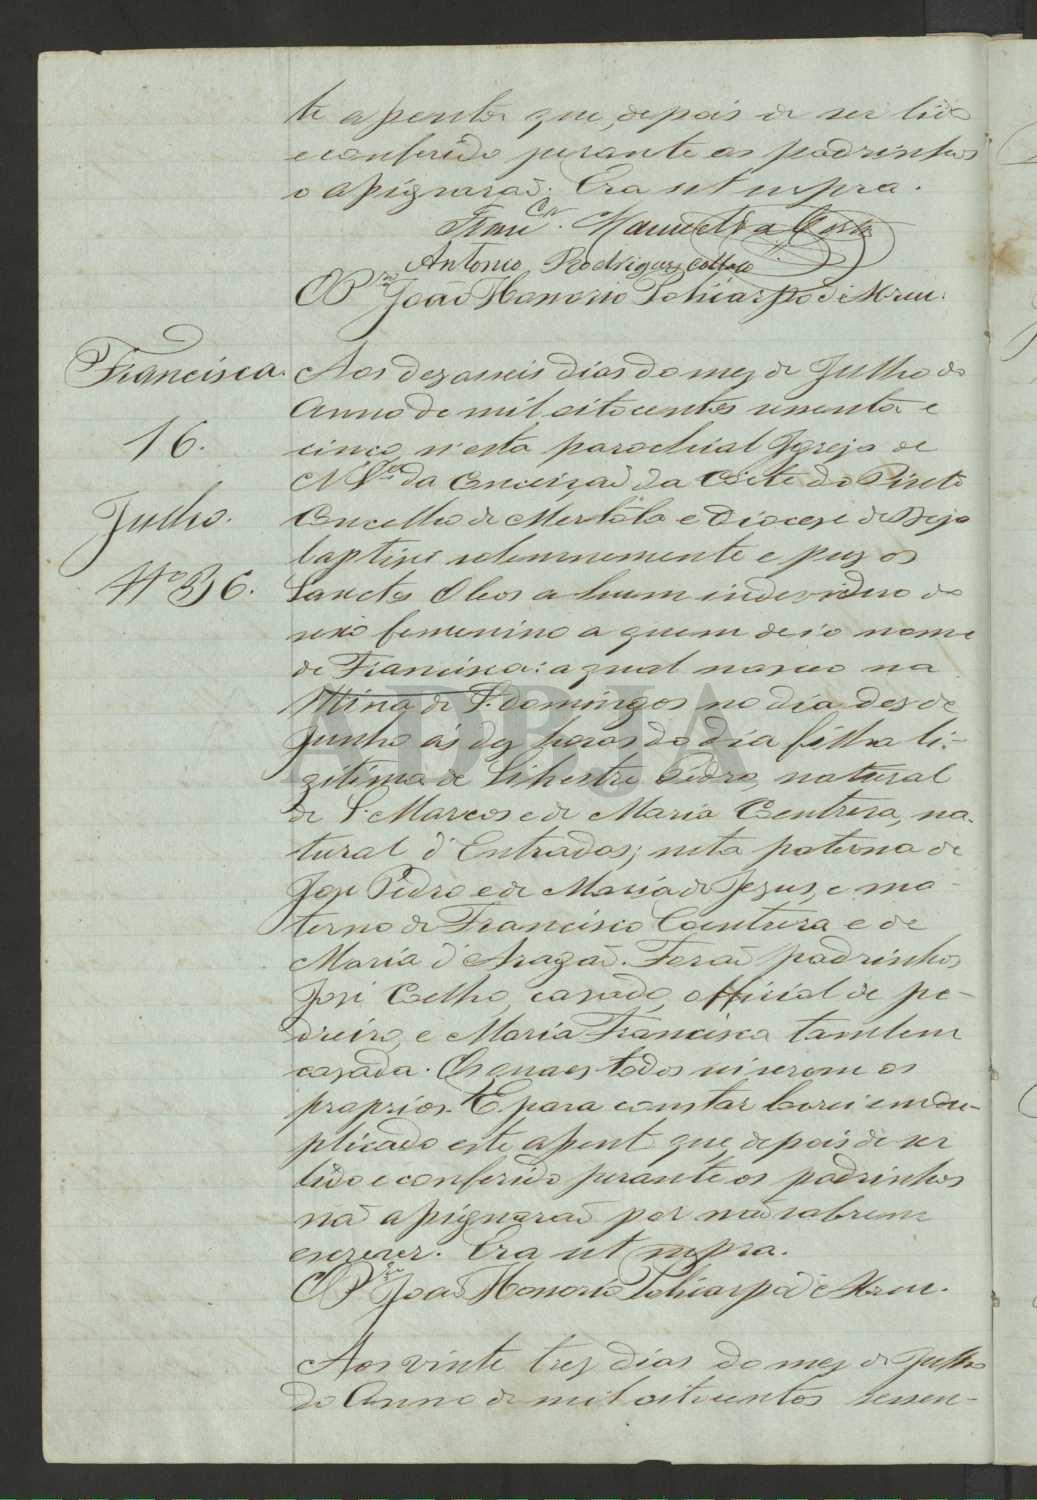 te assento que, depois de ser lido
e conferido perante os padrinhos
o assignarão. Era ut supra.
Manuel da Costa
Antonio Rodrigues Collaço
O Pr. João Honorio Policarpo d'Abreu.
Francisca.
16.
Julho.
Nº 36.
Aos dezasseis dias do mez de Julho do
Anno de mil oitocentos sessenta e
cinco, n'esta parochial Igreja de
N. Srª da Conceição da Côrte do Pinto
Concelho de Mertóla e Diocese de Beja
baptisei solemnemente e puz os
Sanctos Oleos a hum individuo do
sexo femenino a quem dei o nome
de Francisca: a qual nasceo na
Mina de S. Domingos no dia dez de
Junho ás dez horas do dia filha li-
gitima de Silvestre Pedro, natural
de S. Marcos e de Maria Centrera, na-
tural d'Entradas; neta paterna de
José Pedro e de Maria de Jezus, e ma-
terna de Francisco Centrera e de
Maria d'Aragão. Forão padrinhos
José Coelho, casado, official de pe-
dreiro, e Maria Francisca tambem
casada. Os quaes todos sei serem os
proprios. E para constar lavrei em du-
plicado este assento que, depois de ser
lido e conferido perante os padrinhos
não assignarão por não saberem
escrever. Era ut supra.
O Pr. João Honorio Policarpo d'Abreu.
Aos vinte trez dias do mez de Julho
do Anno de mil oitocentos sessen-
ADBJA